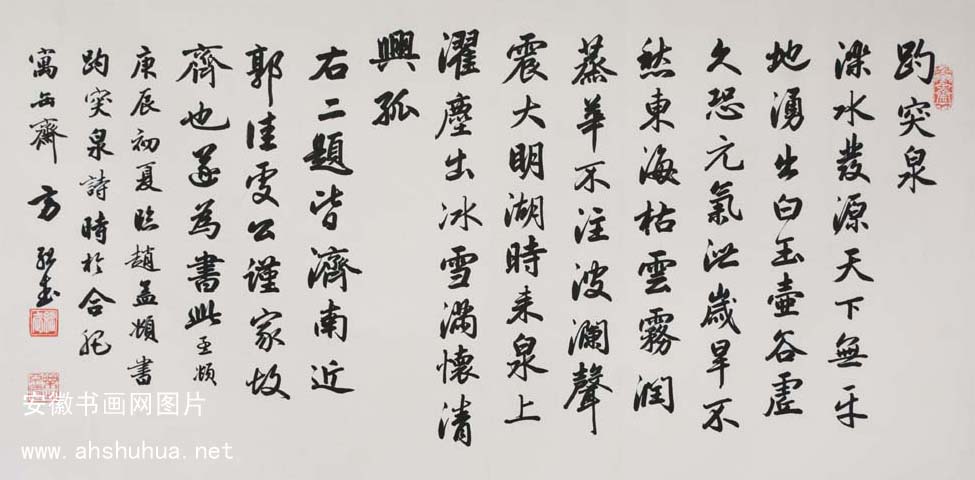 趵突泉
濼水發源天下無平
地湧出白玉壺谷虛
久恐元氣泄歲旱不
愁東海枯雲霧潤
蒸華不注波瀾聲
震大明湖時来泉上
濯塵出冰雪滿懷清
興孤
右二題皆濟南近
郭佳處公謹家故
齊也遂為書此孟頫
庚辰初夏臨趙孟頫書
趵突泉詩時於合肥
寓缶齋 方
安徽书画网图片
www.ahshuhua.net